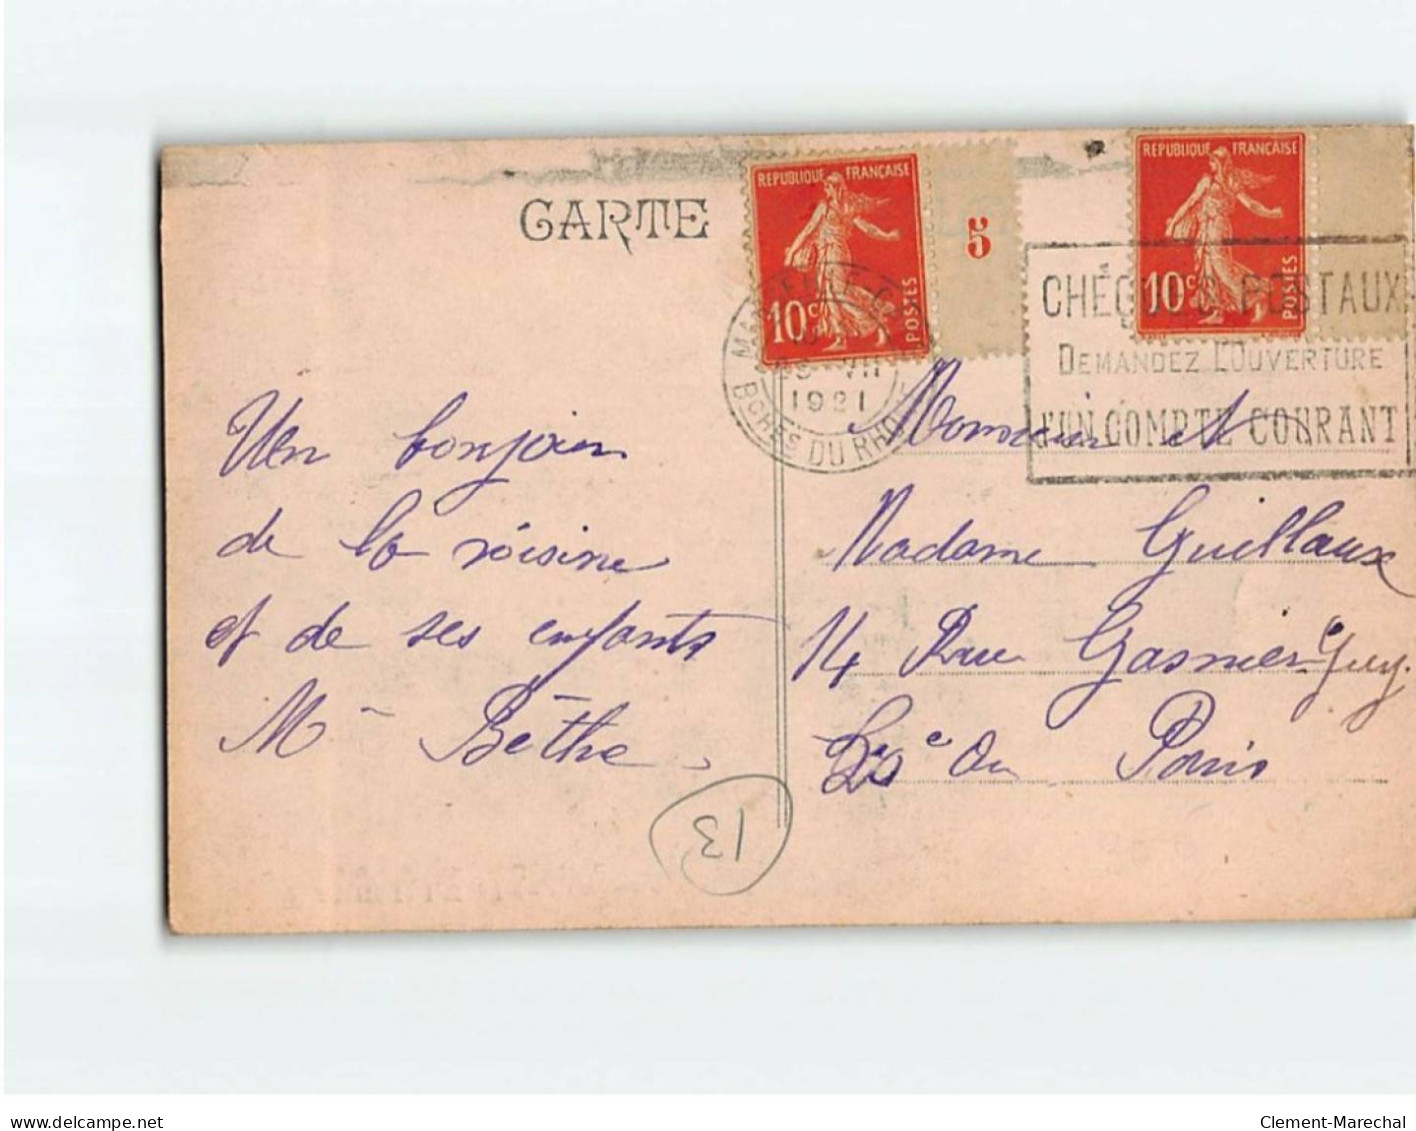 CARTE
REPUBLIQUE FRANÇAISE
10c POSTES
5
REPUBLIQUE FRANÇAISE
10c POSTES
VII
1921
BCHES DU RHONE
CHÈQUES POSTAUX
DEMANDEZ L'OUVERTURE
D'UN COMPTE COURANT
Un bonjour
de la voisine
et de ses enfants
Mme Bèthe
Monsieur et
Madame Guillaux
14 Rue Gasnier-Guy
Paris
13
delcampe.net
Clement-Marechal